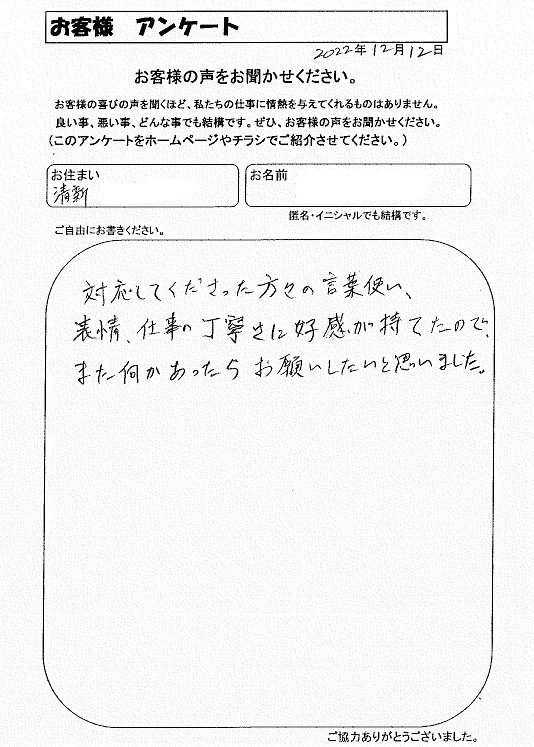 お客様 アンケート
2022年12月12日
お客様の声をお聞かせください。
お客様の喜びの声を聞くほど、私たちの仕事に情熱を与えてくれるものはありません。
良い事、悪い事、どんな事でも結構です。ぜひ、お客様の声をお聞かせください。
(このアンケートをホームページやチラシでご紹介させてください。)
お住まい
清新
お名前
匿名・イニシャルでも結構です。
ご自由にお書きください。
対応してくださった方々の言葉使い、
表情、仕事の丁寧さに好感が持てたので、
また何かあったらお願いしたいと思いました。
ご協力ありがとうございました。